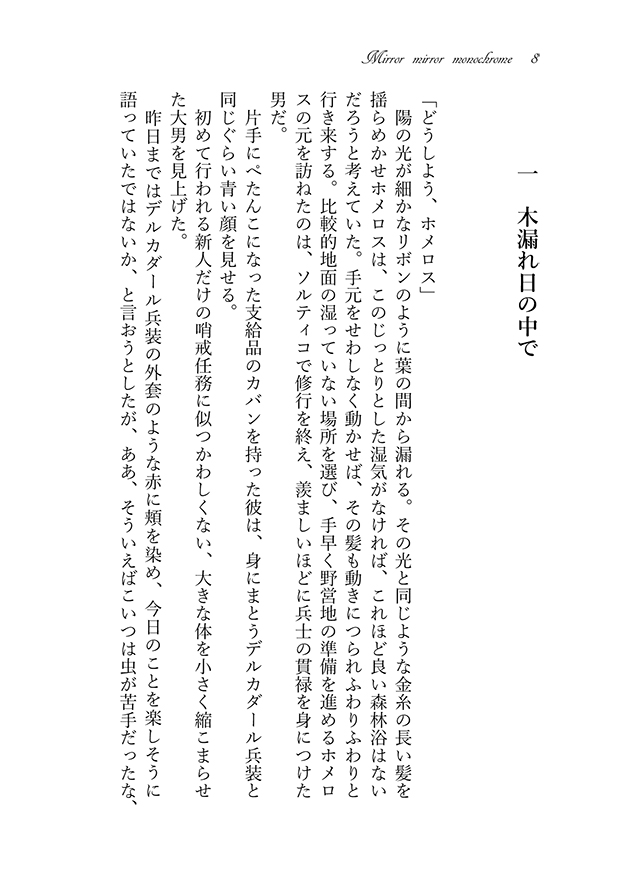 Mirror mirror monochrome 8
一 木漏れ日の中で
「どうしよう、ホメロス」
陽の光が細かなリボンのように葉の間から漏れる。その光と同じような金糸の長い髪を
揺らめかせホメロスは、このじっとりとした湿気がなければ、これほど良い森林浴はない
だろうと考えていた。手元をせわしなく動かせば、その髪も動きにつられふわりふわりと
行き来する。比較的地面の湿っていない場所を選び、手早く野営地の準備を進めるホメロ
スの元を訪ねたのは、ソルティコで修行を終え、羨ましいほどに兵士の貫禄を身につけた
男だ。
片手にぺたんこになった支給品のカバンを持った彼は、身にまとうデルカダール兵装と
同じぐらい青い顔を見せる。
初めて行われる新人だけの哨戒任務に似つかわしくない、大きな体を小さく縮こまらせ
た大男を見上げた。
昨日まではデルカダール兵装の外套のような赤に頬を染め、今日のことを楽しそうに
語っていたではないか、と言おうとしたが、ああ、そういえばこいつは虫が苦手だったな、